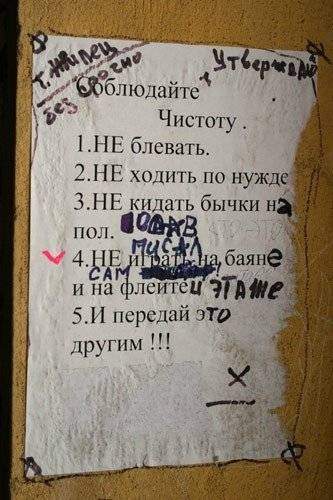 т. жилец
без срочно
т Утверждаю
Соблюдайте
Чистоту.
1.НЕ блевать.
2.НЕ ходить по нужде
3.НЕ кидать бычки на
пол.
писал
4.НЕ играть на баяне
сам
и на флейте и этаже
5.И передай это
другим !!!